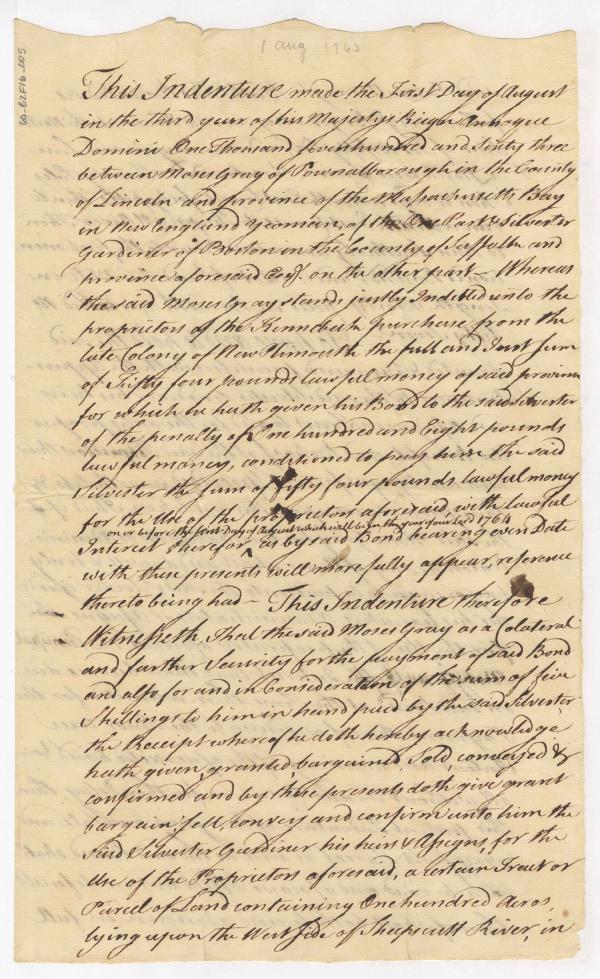 1 aug 1763
60-62F16-005
This Indenture made the First Day of August
in the third year of his Majestys Reign Annoque
Domini One Thousand sevenhundred and Sixty three
between Moses Gray of Pownalborough in the County
of Lincoln and province of the Massachusetts Bay
in New England Yeoman, of the One Part & Silvester
Gardiner of Boston in the County of Suffolk and
province aforesaid Esqr. on the other part – Whereas
the said Moses Gray stands justly Indebted unto the
proprietors of the Kennebeck purchase from the
late Colony of New Plimouth the full and Just Sum
of Fifty four pounds lawful money of said province
for which he hath given his Bond to the said Silvester
of the penalty of One hundred and Eight pounds
lawful money, conditioned to pay him the said
Silvester the Sum of fifty four pounds lawful money
for the Use of the proprietors aforesaid, with lawful
on or before the first Day of August which will be in the year of our Lord 1764
Interest therefor ^ as by said Bond bearing even Date
with these presents will more fully appear, reference
thereto being had – This Indenture therefore
Witnesseth, That the said Moses Gray as a Colateral
and further Security for the payment of said Bond
and also for and in Consideration of the sum of five
Shillings to him in hand paid by the said Silvester,
the Receipt whereof he doth hereby acknowledge
hath given, granted, bargained, Sold, conveyed &
confirmed and by these presents doth give grant
bargain, sell, convey and confirm unto him the
said Silvester Gardiner his heirs & Assigns, for the
Use of the Proprietors aforesaid, a certain Tract or
Parcel of Land containing One hundred Acres,
lying upon the West Side of Sheepscutt River, in